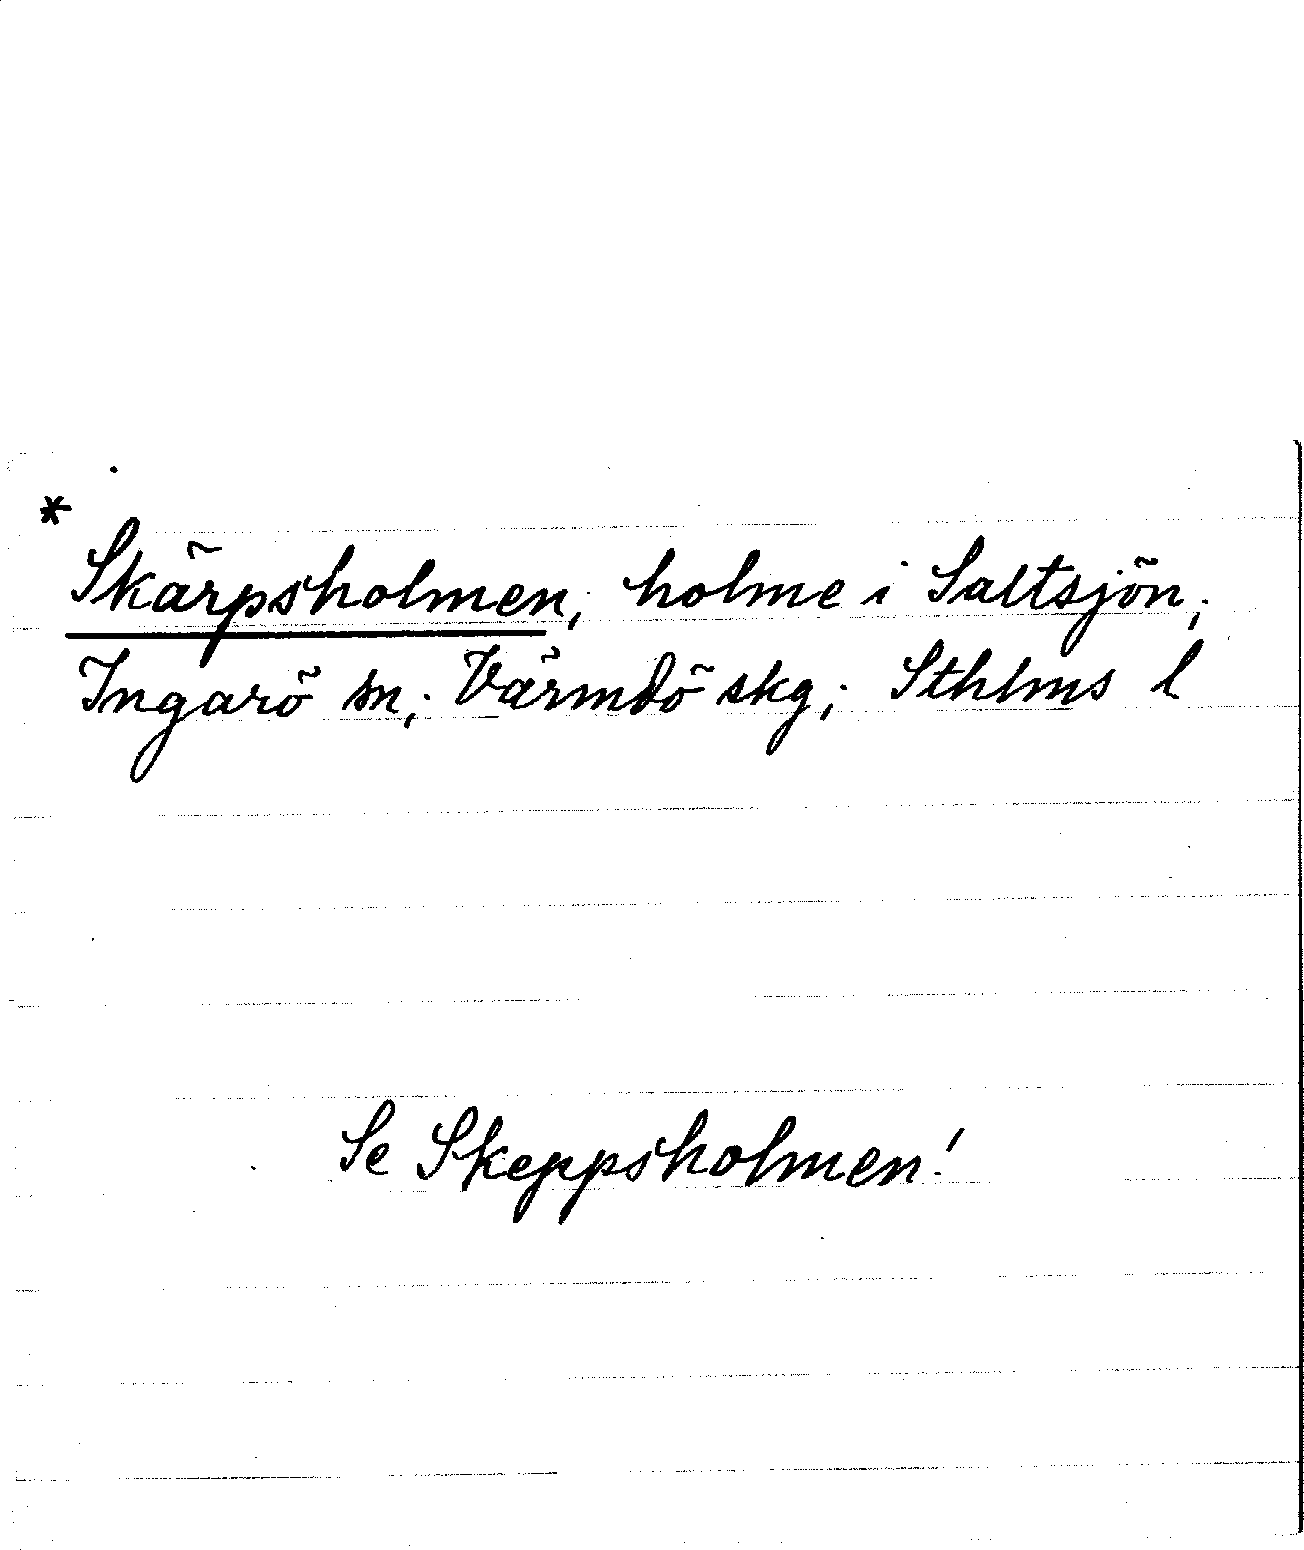 * Skärpsholmen, holme i Saltsjön;
Ingarö sn; Värmdö skg; Sthlms l
Se Skeppsholmen!